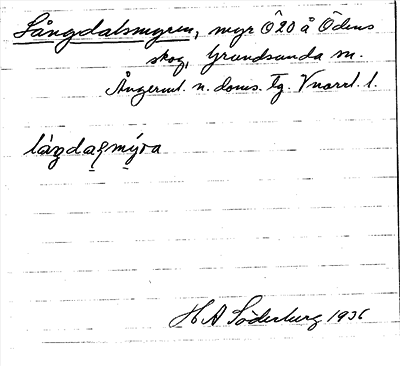 Långdalsmyren, myr Ö 20 å Ödens
skog, Grundsunda sn.
Ångerml. n. doms. Tg. V norrl. l.
làŋdaʂmýra
H A Söderberg 1936